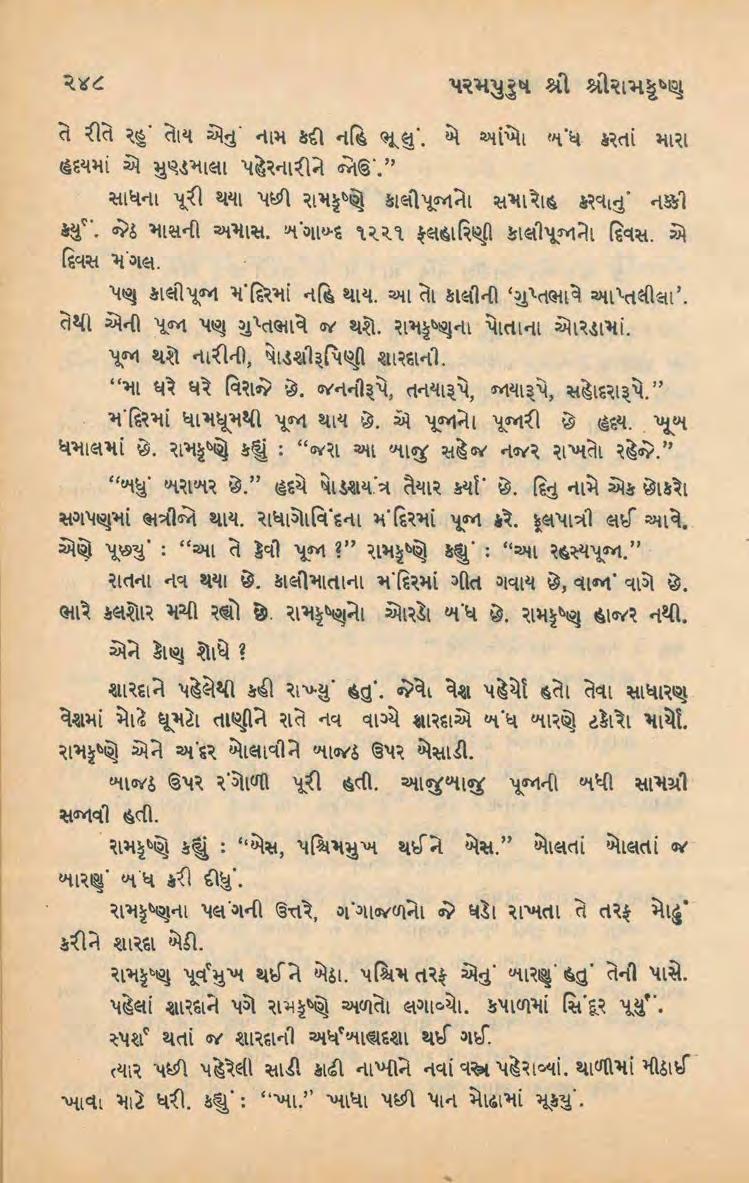 ૨૪૮ પરમપુરુષ શ્રી શ્રીરામકૃષ્ણ
તે રીતે રહું તોય એનું નામ કદી નહિ ભૂલું. બે આંખો બંધ કરતાં મારા
હૃદયમાં એ મુણ્ડમાલા પહેરનારીને જોઉં.”
સાધના પૂરી થયા પછી રામકૃષ્ણે કાલીપૂજાનો સમારોહ કરવાનું નક્કી
કર્યું. જેઠ માસની અમાસ. બંગાબ્દ ૧૨૨૧ ફલહારિણી કાલીપૂજાનો દિવસ. એ
દિવસ મંગલ.
પણ કાલીપૂજા મંદિરમાં નહિ થાય. આ તો કાલીની ‘ગુપ્તભાવે આપ્તલીલા’.
તેથી એની પૂજા પણ ગુપ્તભાવે જ થશે. રામકૃષ્ણના પોતાના ઓરડામાં.
પૂજા થશે નારીની, ષોડશીરૂપિણી શારદાની.
“મા ઘરે ઘરે વિરાજે છે. જનનીરૂપે, તનયારૂપે, જાયારૂપે, સહોદરારૂપે.”
મંદિરમાં ધામધૂમથી પૂજા થાય છે. એ પૂજાનો પૂજારી છે હૃદય. ખૂબ
ધમાલમાં છે. રામકૃષ્ણે કહ્યું : “જરા આ બાજુ સહેજ નજર રાખતો રહેજે.”
“બધું બરાબર છે.” હૃદયે ષોડશયંત્ર તૈયાર કર્યાં છે. દિનુ નામે એક છોકરો
સગપણમાં ભત્રીજો થાય. રાધાગોવિંદના મંદિરમાં પૂજા કરે. ફૂલપાત્રી લઈ આવે.
એણે પૂછ્યું : “આ તે કેવી પૂજા ?” રામકૃષ્ણે કહ્યું : “આ રહસ્યપૂજા.”
રાતના નવ થયા છે. કાલીમાતાના મંદિરમાં ગીત ગવાય છે, વાજાં વાગે છે.
ભારે કલશોર મચી રહ્યો છે. રામકૃષ્ણનો ઓરડો બંધ છે. રામકૃષ્ણ હાજર નથી.
એને કોણ શોધે ?
શારદાને પહેલેથી કહી રાખ્યું હતું. જેવો વેશ પહેર્યો હતો તેવા સાધારણ
વેશમાં મોઢે ઘૂમટો તાણીને રાતે નવ વાગ્યે શારદાએ બંધ બારણે ટકોરો માર્યો.
રામકૃષ્ણે એને અંદર બોલાવીને બાજઠ ઉપર બેસાડી.
બાજઠ ઉપર રંગોળી પૂરી હતી. આજુબાજુ પૂજાની બધી સામગ્રી
સજાવી હતી.
રામકૃષ્ણે કહ્યું : “બેસ, પશ્ચિમમુખ થઈને બેસ.” બોલતાં બોલતાં જ
બારણું બંધ કરી દીધું.
રામકૃષ્ણના પલંગની ઉત્તરે, ગંગાજળનો જે ઘડો રાખતા તે તરફ મોઢું
કરીને શારદા બેઠી.
રામકૃષ્ણ પૂર્વમુખ થઈને બેઠા. પશ્ચિમ તરફ એનું બારણું હતું તેની પાસે.
પહેલાં શારદાને પગે રામકૃષ્ણે અળતો લગાવ્યો. કપાળમાં સિંદૂર પૂર્યું.
સ્પર્શ થતાં જ શારદાની અર્ધબાહ્યદશા થઈ ગઈ.
ત્યાર પછી પહેરેલી સાડી કાઢી નાખીને નવાં વસ્ત્ર પહેરાવ્યાં. થાળીમાં મીઠાઈ
ખાવા માટે ધરી. કહ્યું : “ખા.” ખાધા પછી પાન મોઢામાં મૂકયું.